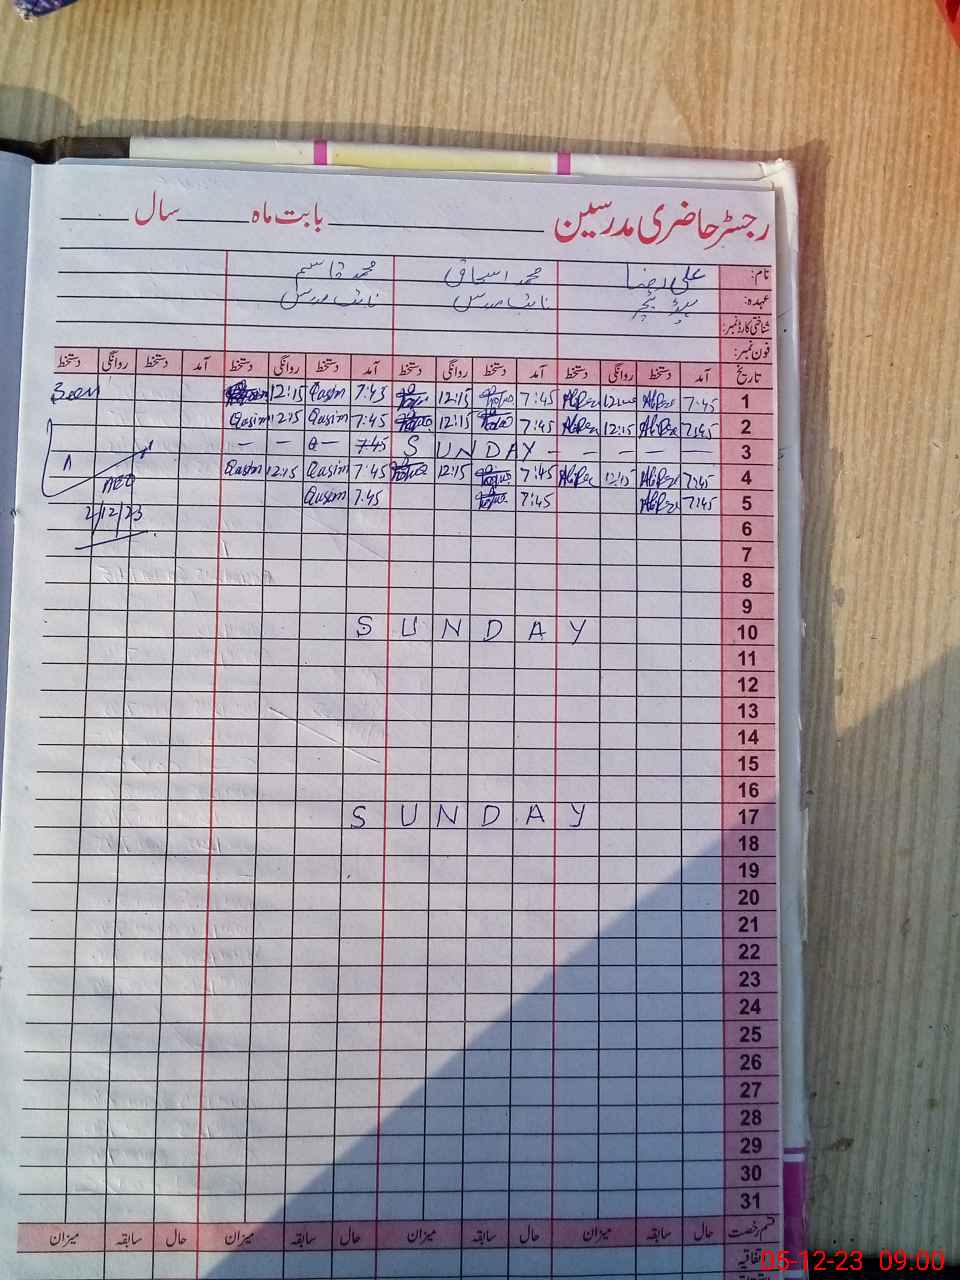 رجسٹر حاضری مدرسین ________ بابت ماہ ______ سال ______
نام: علی رضا محمد اسحاق محمد قاسم
عہدہ: ہیڈ ٹیچر نائب مدرس نائب مدرس
شناختی کارڈ نمبر:
فون نمبر:
تاریخ آمد دستخط روانگی دستخط آمد دستخط روانگی دستخط آمد دستخط روانگی دستخط آمد دستخط روانگی دستخط
1 7:45 12:15 7:45 12:15 7:45 Qasim 12:15
2 7:45 12:15 7:45 12:15 7:45 Qasim 12:15 Qasim
3 — — — — SUNDAY 7:45 — Q — —
4 7:45 12:15 7:45 12:15 7:45 Qasim 12:15 Qasim
5 7:45 7:45 7:45 Qasim
AEO
2/12/23
6
7
8
9
10 SUNDAY
11
12
13
14
15
16
17 SUNDAY
18
19
20
21
22
23
24
25
26
27
28
29
30
31
قسم رخصت حال سابقہ میزان حال سابقہ میزان حال سابقہ میزان حال سابقہ میزان
اتفاقیہ
05-12-23 09:00